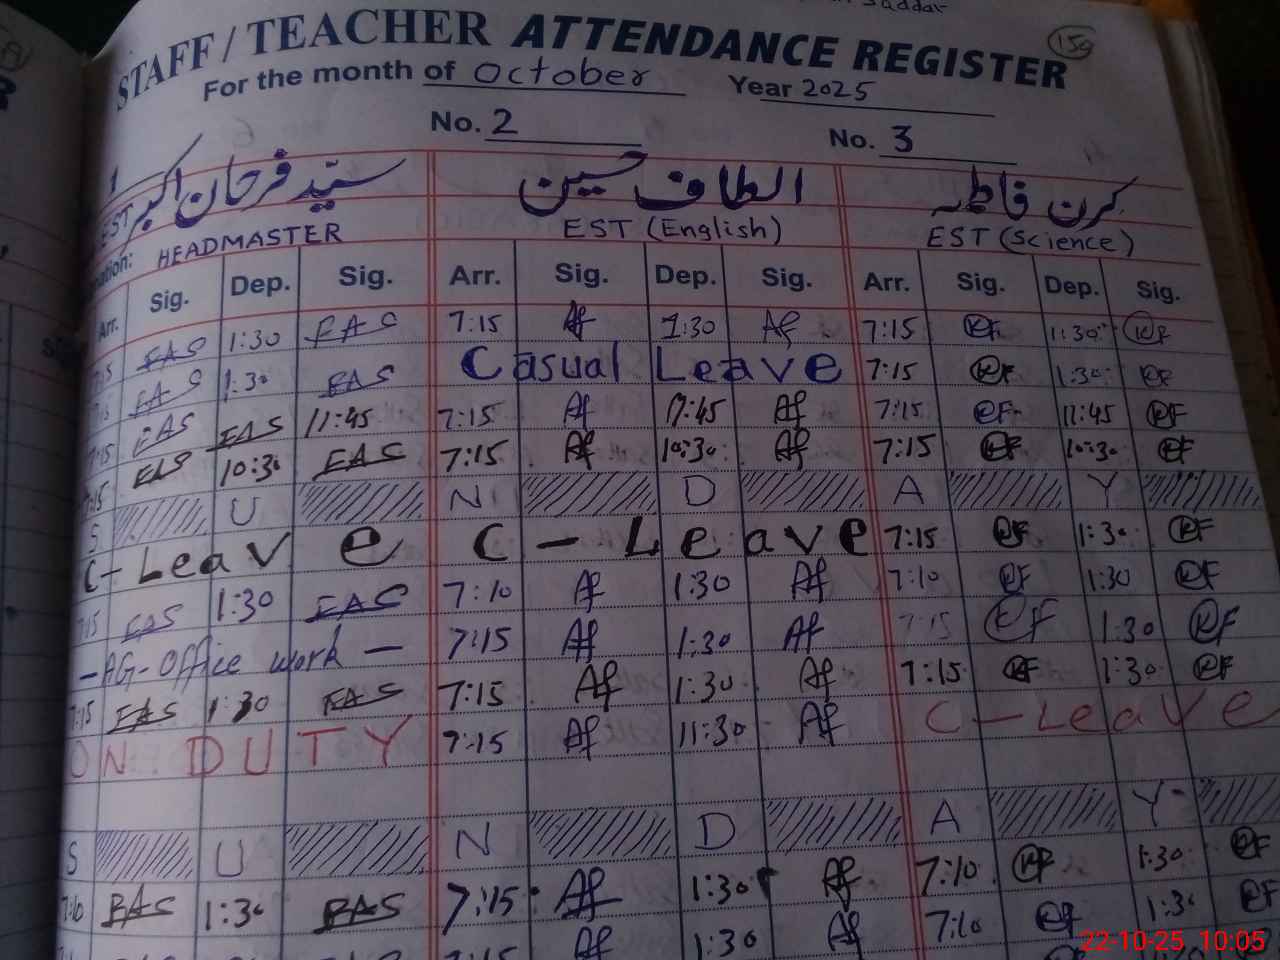 Saddar
159
STAFF / TEACHER ATTENDANCE REGISTER
For the month of October Year 2025
No. 2 No. 3
سید فرحان اکبر الطاف حسین کرن فاطمہ
EST HEADMASTER EST (English) EST (Science)
Arr. Sig. Dep. Sig. Arr. Sig. Dep. Sig. Arr. Sig. Dep. Sig.
FAS 1:30 FAS 7:15 Af 1:30 Af 7:15 KF 1:30 KF
7:15 FAS 1:30 FAS Casual Leave 7:15 KF 1:30 KF
7:15 FAS FAS 11:45 7:15 Af 11:45 Af 7:15 KF 11:45 KF
7:15 FAS 10:30 FAS 7:15 Af 10:30 Af 7:15 KF 10:30 KF
S U N D A Y
C-Leave C-Leave 7:15 KF 1:30 KF
7:15 FAS 1:30 FAS 7:10 Af 1:30 Af 7:10 KF 1:30 KF
-AG-Office work- 7:15 Af 1:30 Af 7:15 KF 1:30 KF
7:15 FAS 1:30 FAS 7:15 Af 1:30 Af 7:15 KF 1:30 KF
ON DUTY 7:15 Af 11:30 Af C-Leave
S U N D A Y
7:10 FAS 1:30 FAS 7:15 Af 1:30 Af 7:10 KF 1:30 KF
7:15 Af 1:30 Af 7:10 KF 1:30 KF
22-10-25 10:05